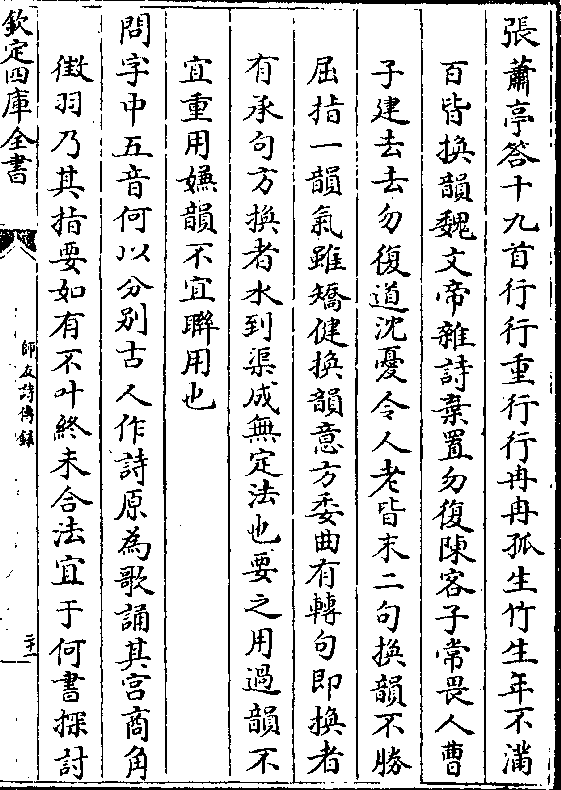 張蕭亭答十九首行行重行行冉冉孤生竹生年不滿
百皆換韻魏文帝雜詩棄置勿復陳客子常畏人曹
子建去去勿復道沈憂令人老皆末二句換韻不勝
屈指一韻氣雖矯健換韻意方委曲有轉句即換者
有承句方換者水到渠成無定法也要之用過韻不
宜重用嫌韻不宜聨用也
問字中五音何以分別古人作詩原為歌誦其宮商角
徵羽乃其指要如有不叶終未合法宜于何書探討
欽定四庫全書
師友詩傳録
二十一